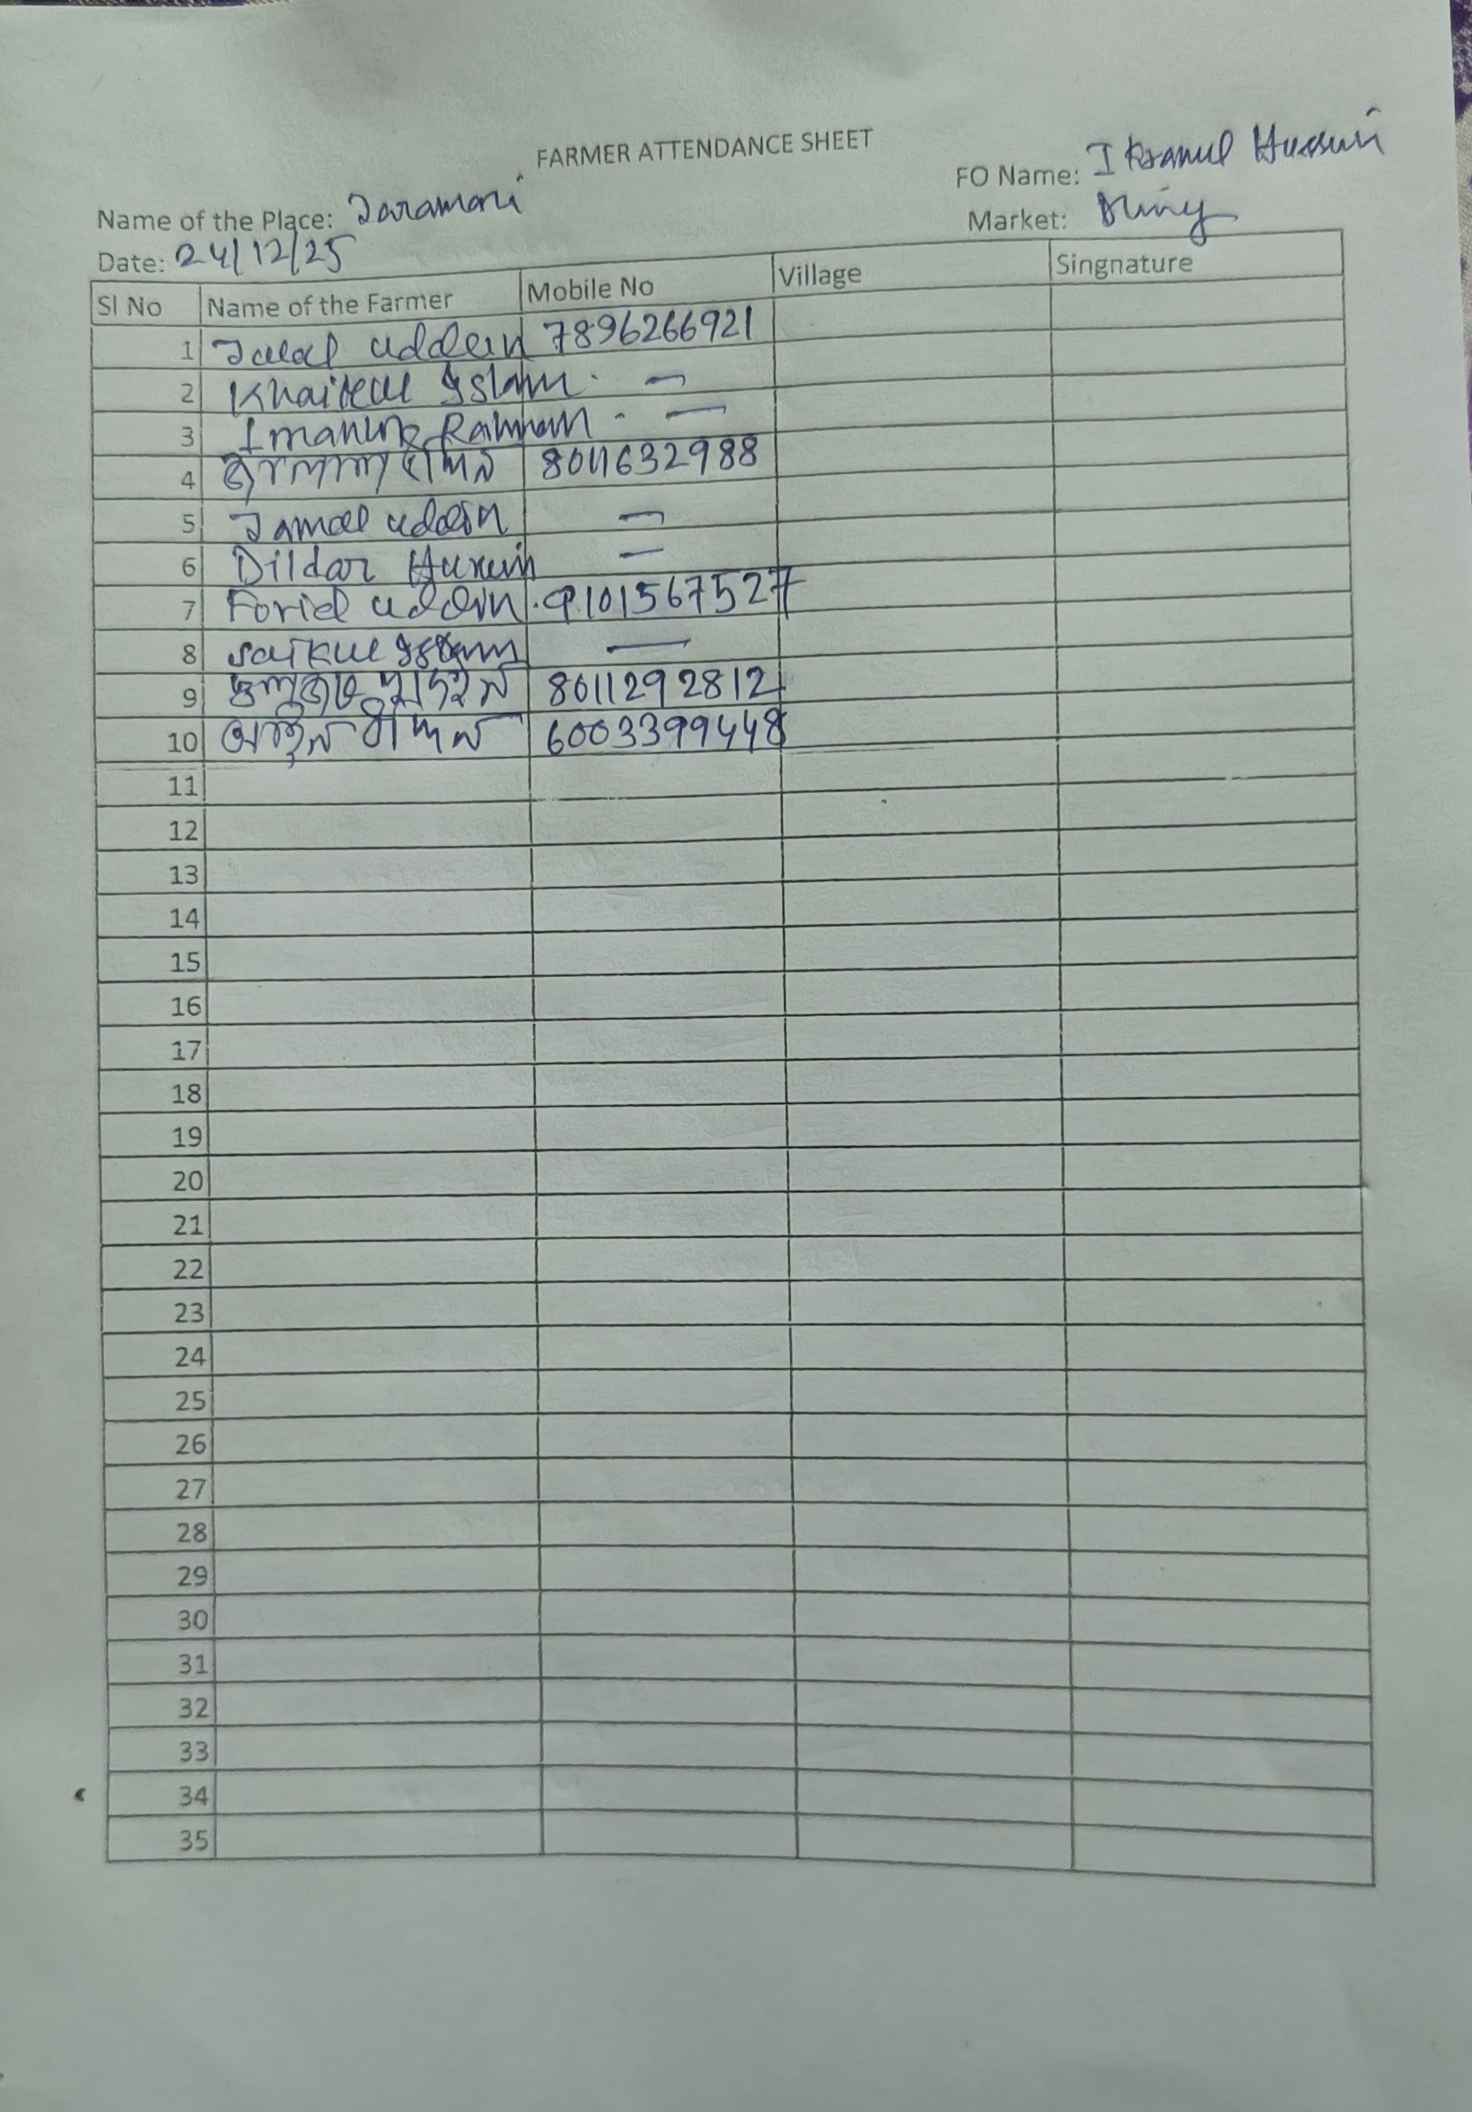 FARMER ATTENDANCE SHEET
FO Name: Ikramul Hussain
Name of the Place: Jaramari
Market:
Date: 24/12/25
Sl No Name of the Farmer Mobile No Village Singnature
1 Jalal uddein 7896266921
2 Khairul Islam. —
3 Imanur Rahman - —
4 8011632988
5 Jamal uddin —
6 Dildar Husein —
7 Forid uddin. 9101567527
8 saikul Islam —
9 8011292812
10 6003399448
11
12
13
14
15
16
17
18
19
20
21
22
23
24
25
26
27
28
29
30
31
32
33
34
35